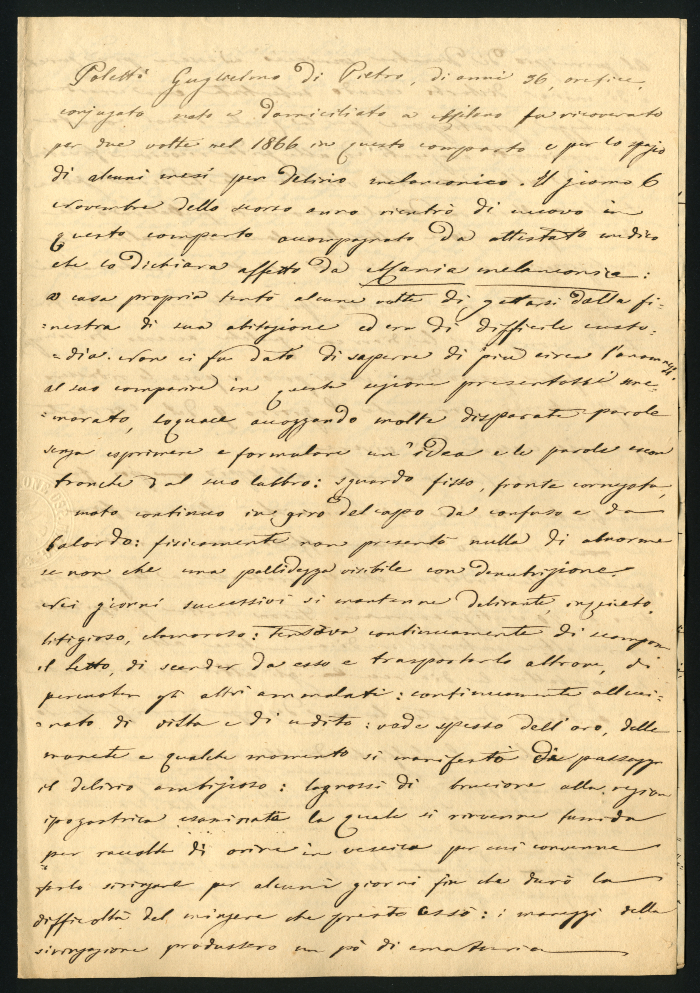 Poletti Guglielmo di Pietro, di anni 36, orefice,
conjugato nato e domiciliato a Milano fu ricoverato
per due volte nel 1866 in questo comparto e per lo spazio
di alcuni mesi per delirio melanconico. Il giorno 6
Novembre dello scorso anno rientrò di nuovo in
questo comparto accompagnato da attestato medico
che lo dichiara affetto da Mania melanconica:
a casa propria tentò alcune volte di gettarsi dalla fi-
=nestra di sua abitazione ed era di difficile custo-
=dia. Non ci fu dato di saperne di più circa l'anamnesi.
al suo comparire in questa sezione presentossi sme-
=morato, loquace accozzando molte disparate parole
senza esprimere e formulare un' idea e le parole escon
tronche dal suo labbro: sguardo fisso, fronte corrugata,
moto continuo in giro del capo da confuso e da
balordo: fisicamente non presentò nulla di abnorme
se non che una pallidezza visibile con denutrizione.
Nei giorni successivi si mantenne delirante, inquieto,
litigioso, clamoroso: tentava continuamente di scompon
il letto, di scender da esso e trasportarlo altrove, di
percuoter gli altri ammalati: continuamente alluci-
=nato di vista e di udito: vede spesso dell'oro, delle
monete e qualche momento si manifestò di passaggio
il delirio ambizioso: lagnossi di bruciore alla regione
ipogastrica esaminata la quale si rinvenne tumida
per raccolta di orine in vescica per cui convenne
farlo siringare per alcuni giorni fin che durò la
difficoltà del mingere che presto cessò: i maneggi della
siringazione produssero un pò di ematuria